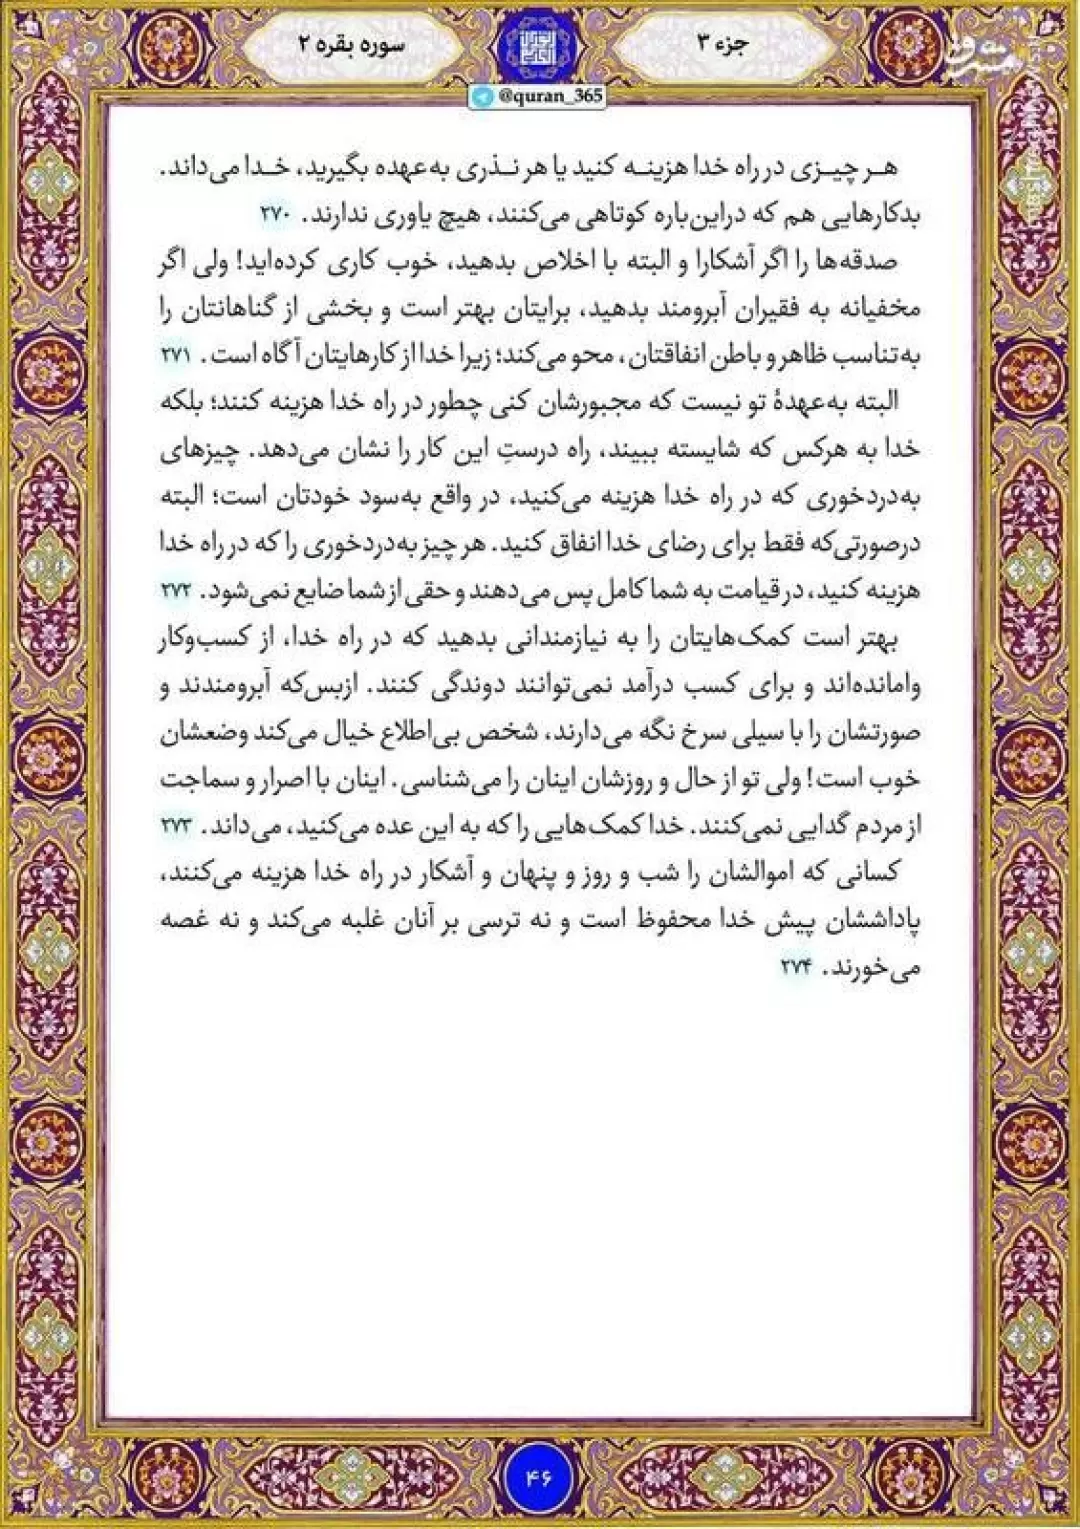 جزء ۳
سوره بقره ۲
@quran_365
هر چیزی در راه خدا هزینه کنید یا هر نذری به‌عهده بگیرید، خدا می‌داند.
بدکارهایی هم که دراین‌باره کوتاهی می‌کنند، هیچ یاوری ندارند. ۲۷۰
صدقه‌ها را اگر آشکارا و البته با اخلاص بدهید، خوب کاری کرده‌اید! ولی اگر
مخفیانه به فقیران آبرومند بدهید، برایتان بهتر است و بخشی از گناهانتان را
به‌تناسب ظاهر و باطن انفاقتان، محو می‌کند؛ زیرا خدا از کارهایتان آگاه است. ۲۷۱
البته به‌عهدهٔ تو نیست که مجبورشان کنی چطور در راه خدا هزینه کنند؛ بلکه
خدا به هرکس که شایسته ببیند، راه درستِ این کار را نشان می‌دهد. چیزهای
به‌دردخوری که در راه خدا هزینه می‌کنید، در واقع به‌سود خودتان است؛ البته
درصورتی‌که فقط برای رضای خدا انفاق کنید. هر چیز به‌دردخوری را که در راه خدا
هزینه کنید، در قیامت به شما کامل پس می‌دهند و حقی از شما ضایع نمی‌شود. ۲۷۲
بهتر است کمک‌هایتان را به نیازمندانی بدهید که در راه خدا، از کسب‌وکار
وامانده‌اند و برای کسب درآمد نمی‌توانند دوندگی کنند. ازبس‌که آبرومندند و
صورتشان را با سیلی سرخ نگه می‌دارند، شخص بی‌اطلاع خیال می‌کند وضعشان
خوب است! ولی تو از حال و روزشان اینان را می‌شناسی. اینان با اصرار و سماجت
از مردم گدایی نمی‌کنند. خدا کمک‌هایی را که به این عده می‌کنید، می‌داند. ۲۷۳
کسانی که اموالشان را شب و روز و پنهان و آشکار در راه خدا هزینه می‌کنند،
پاداششان پیش خدا محفوظ است و نه ترسی بر آنان غلبه می‌کند و نه غصه
می‌خورند. ۲۷۴
۴۶